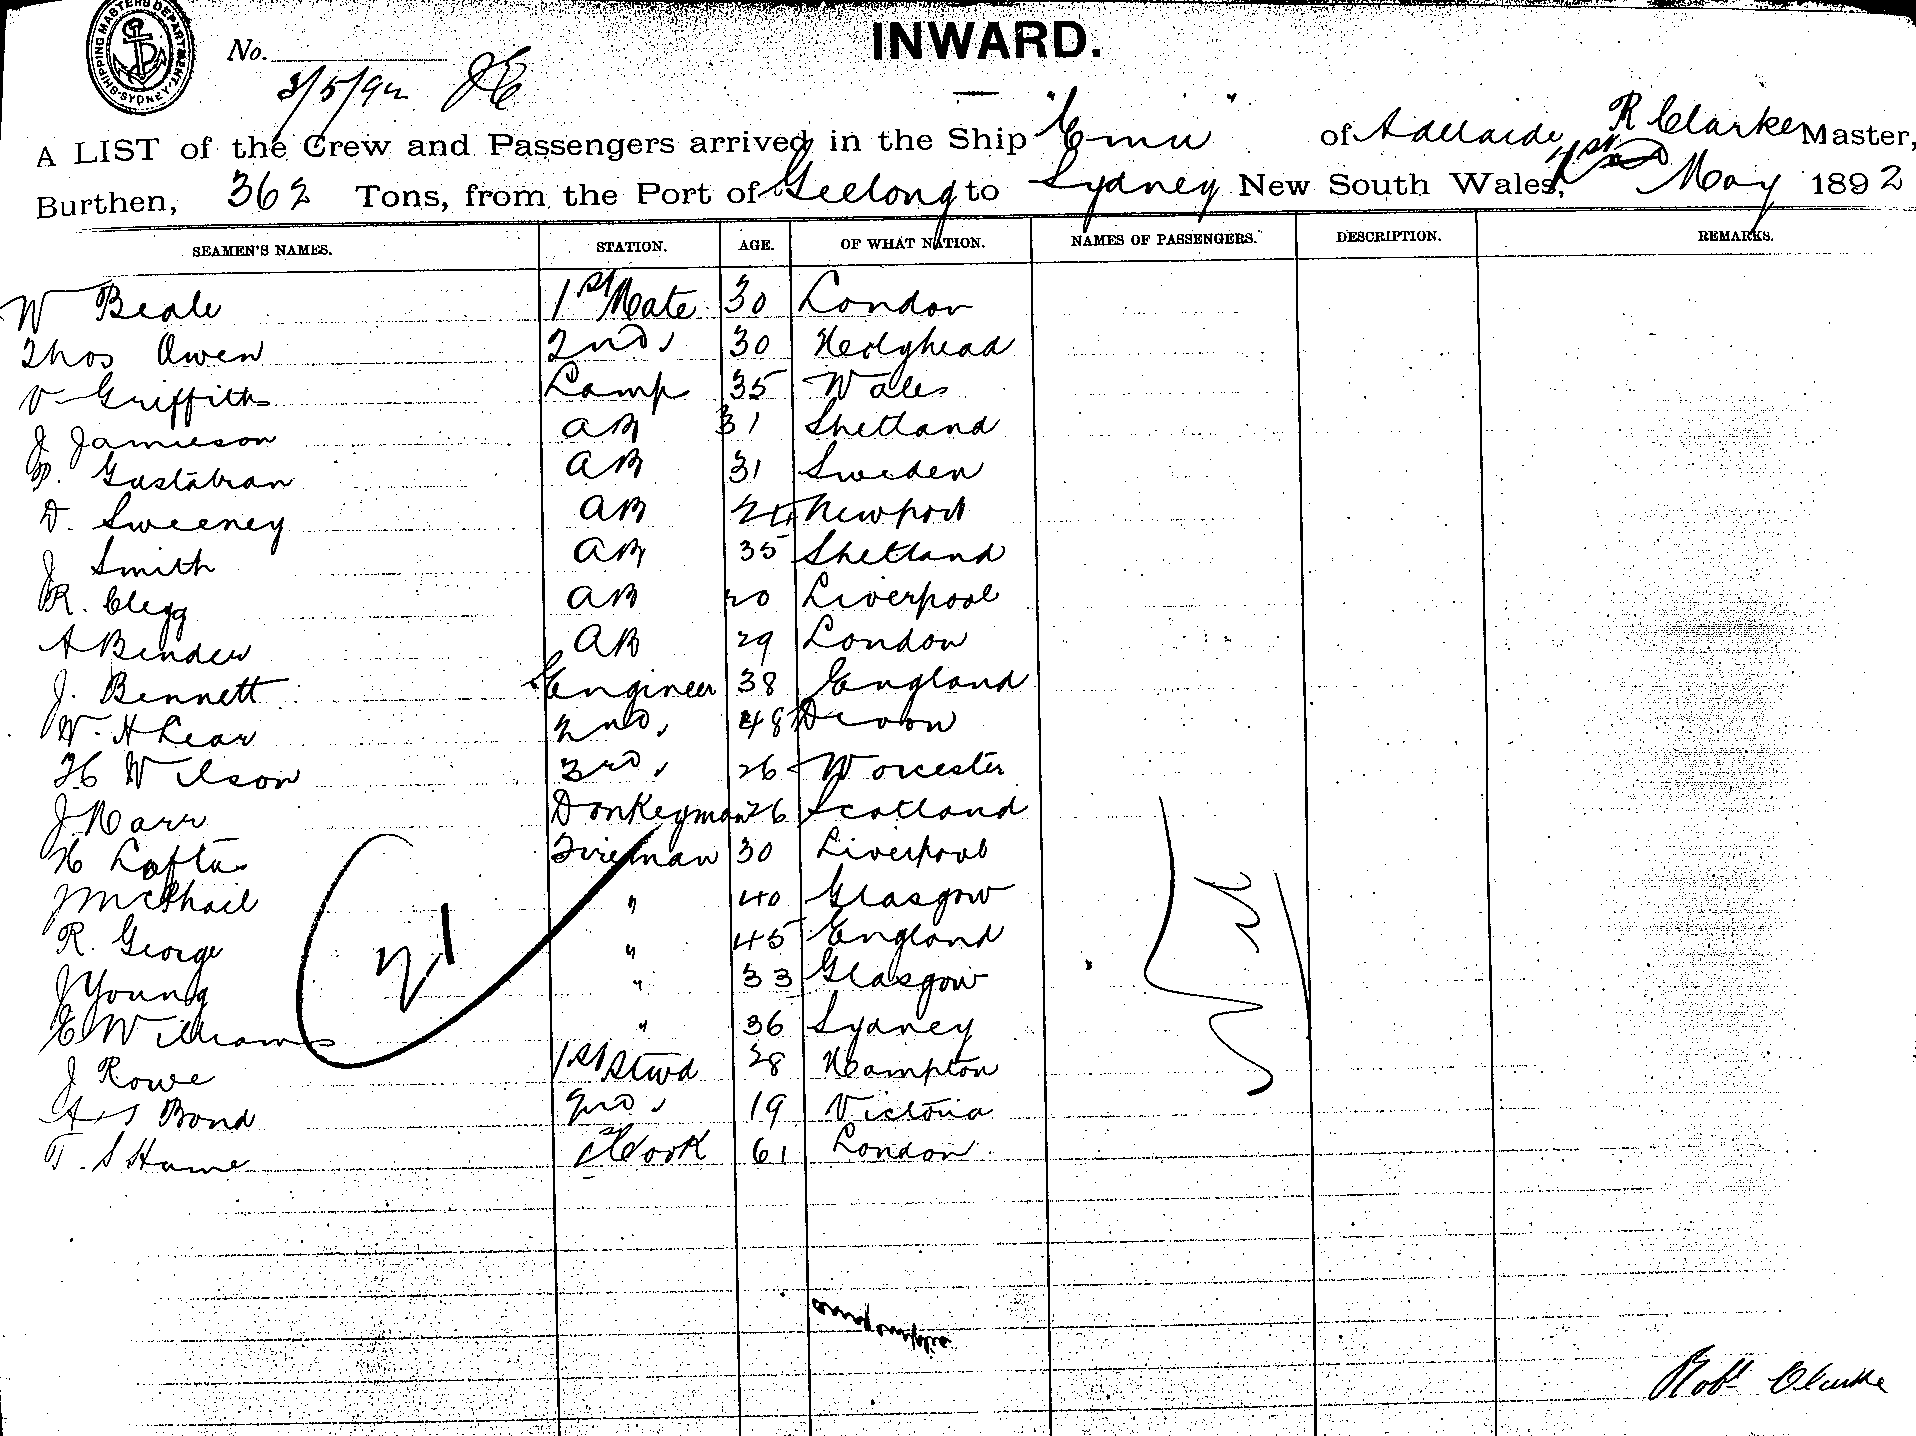 SHIPPING MASTERS DEPARTMENT SYDNEY
INWARD.
No.
3/5/92
A LIST of the Crew and Passengers arrived in the Ship "Emu" of Adelaide, R Clarke Master,
Burthen, 362 Tons, from the Port of Geelong to Sydney New South Wales, 1st May 1892
SEAMEN'S NAMES. STATION. AGE. OF WHAT NATION. NAMES OF PASSENGERS. DESCRIPTION. REMARKS.
W Beale 1st Mate 30 London
Thos Owen 2nd , 30 Holyhead
V Griffiths Lamp 35 Wales
J Jamieson AB 31 Shetland
P. Gustabran AB 31 Sweden
D. Sweeney AB Newport
J Smith AB 35 Shetland
R. Clegg AB 20 Liverpool
A Bender AB 29 London
J. Bennett Engineer 38 England
W. H Lear 2nd , 48 Devon
H Wilson 3rd , 26 Worcester
J Marr Donkeyman 26 Scotland
H Loftus Fireman 30 Liverpool
J McPhail " 40 Glasgow
R. George " 45 England
J Young " 33 Glasgow
E Williams " 36 Sydney
J Rowe 1st Stwd 28 Hampton
A S Bond 2nd , 19 Victoria
T. S Hume 1st Cook 61 London
21
Nil
Robt Clarke